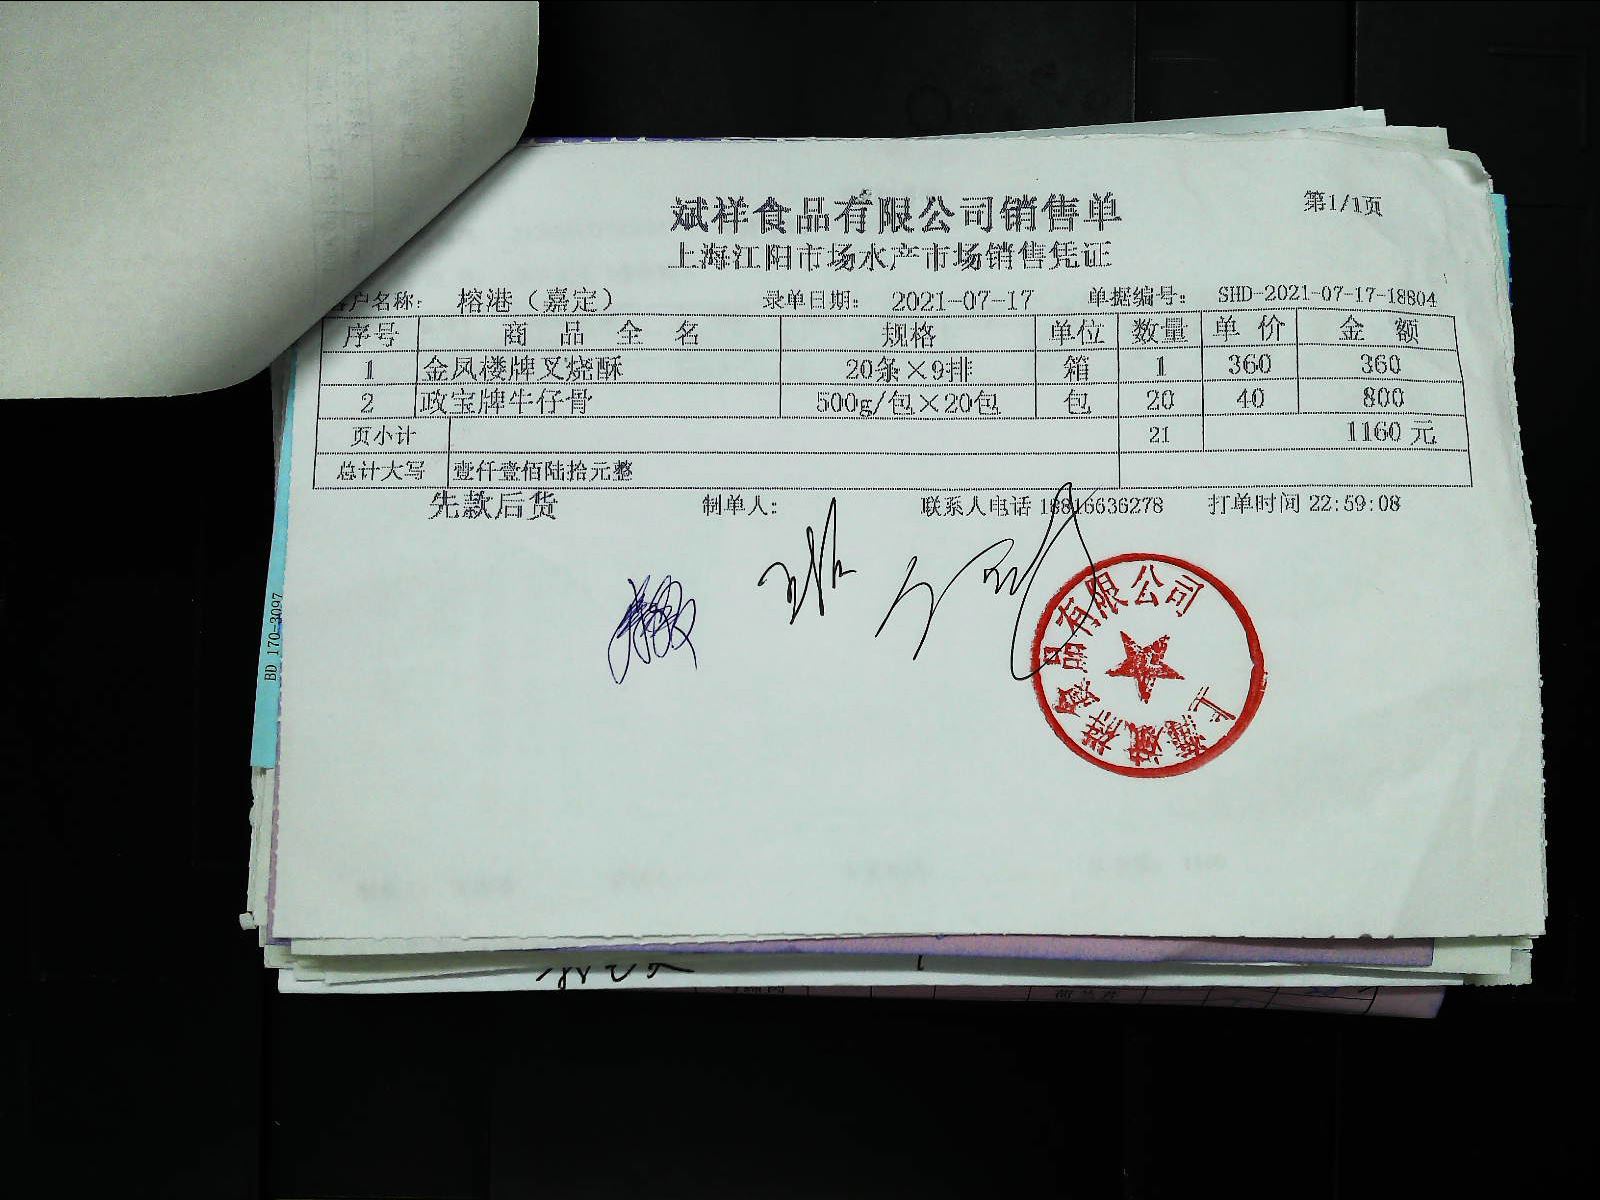 斌祥食品有限公司销售单
第1/1页
上海江阳市场水产市场销售凭证
客户名称: 榕港（嘉定） 录单日期: 2021-07-17 单据编号: SHD-2021-07-17-18804
序号 商品全名 规格 单位 数量 单价 金额
1 金凤楼牌叉烧酥 20条×9排 箱 1 360 360
2 政宝牌牛仔骨 500g/包×20包 包 20 40 800
页小计 21 1160 元
总计大写 壹仟壹佰陆拾元整
先款后货 制单人: 联系人电话 18816636278 打单时间 22:59:08
上海斌祥食品有限公司
BD 170-3097